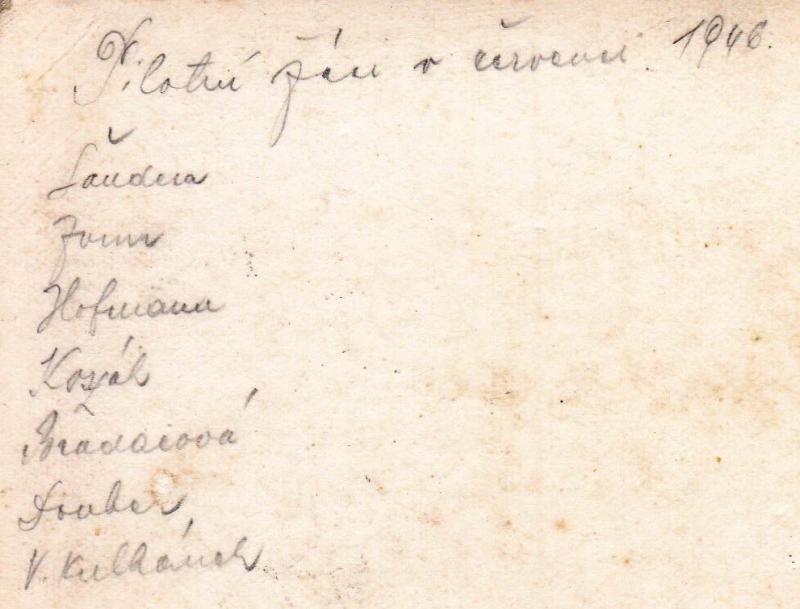 Pilotní žáci v červenci. 1946.
Šandera
Zorin
Hofmann
Kozák
Bradáčová
Douber
V. Kulhánek